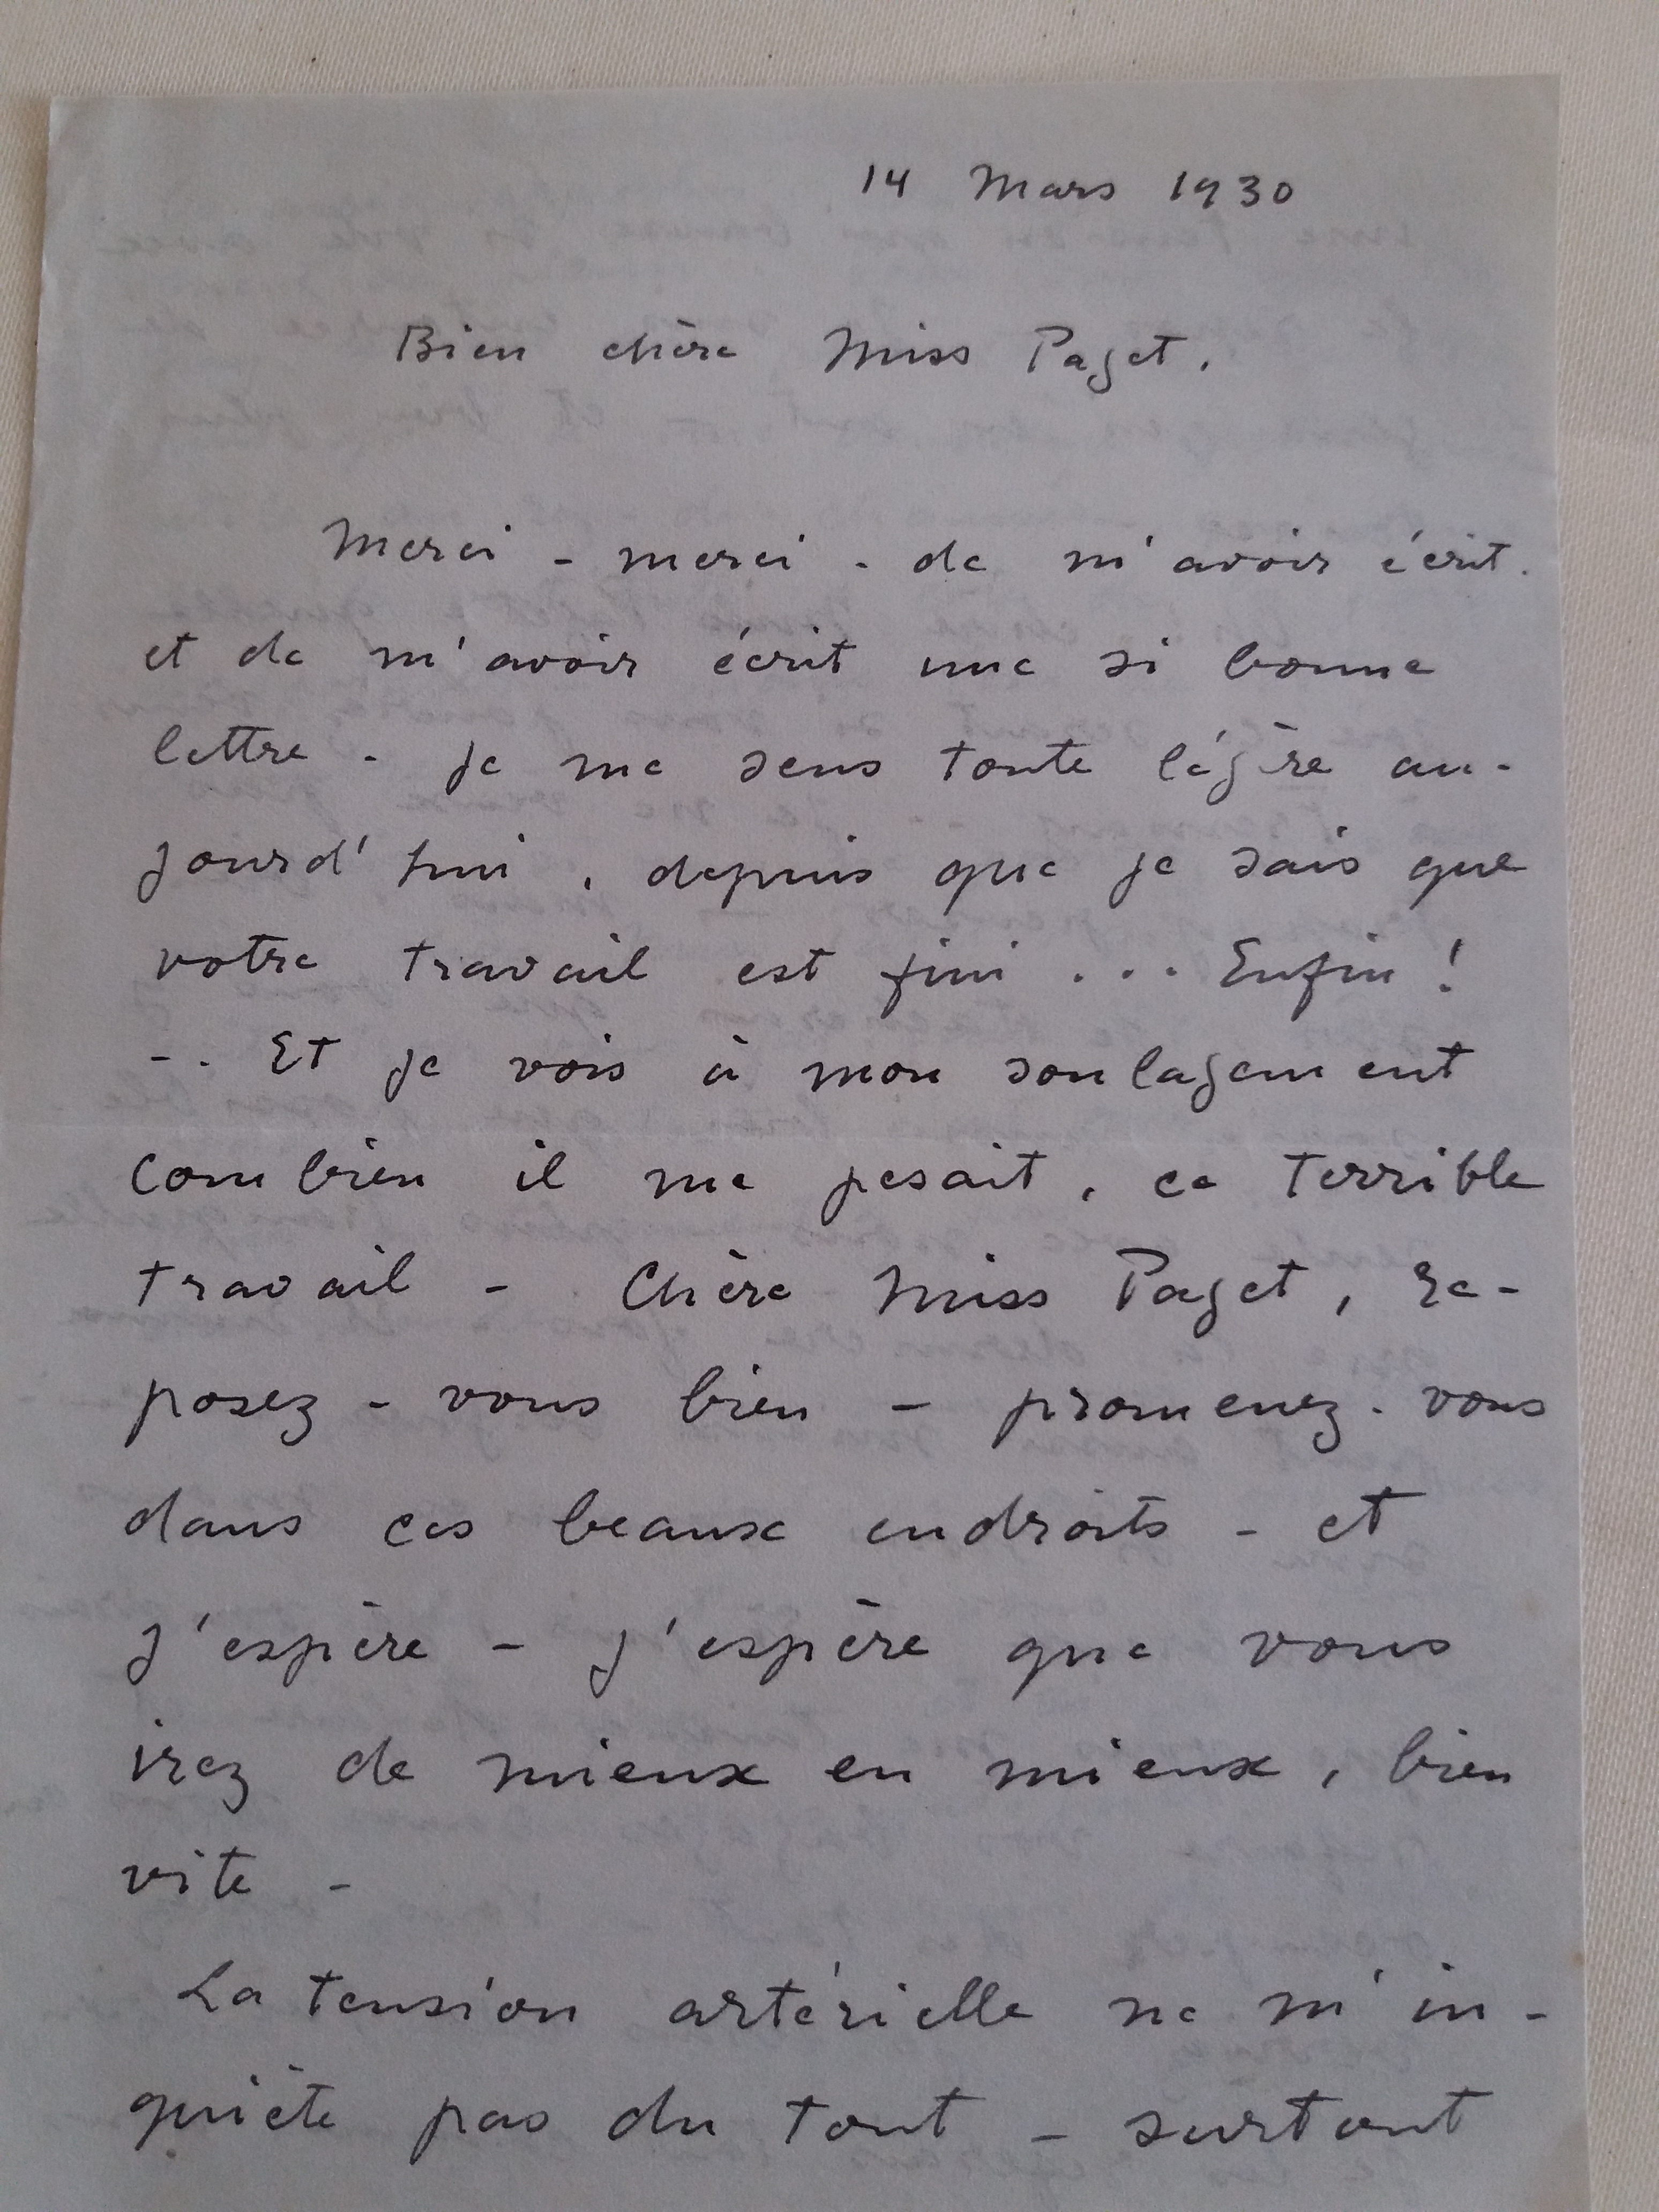 14 Mars 1930
Bien chère Miss Paget.
Merci - merci - de m'avoir écrit.
et de m'avoir écrit une si bonne
lettre - je me sens toute légère au-
jourd'hui, depuis que je sais que
votre travail est fini ... Enfin !
-. Et je vois à mon soulagement
combien il me pesait, ce terrible
travail - Chère Miss Paget, re-
posez-vous bien - promenez-vous
dans ces beaux endroits - et
j'espère - j'espère que vous
irez de mieux en mieux, bien
vite -
La tension artérielle ne m'in-
quiète pas du tout - surtout